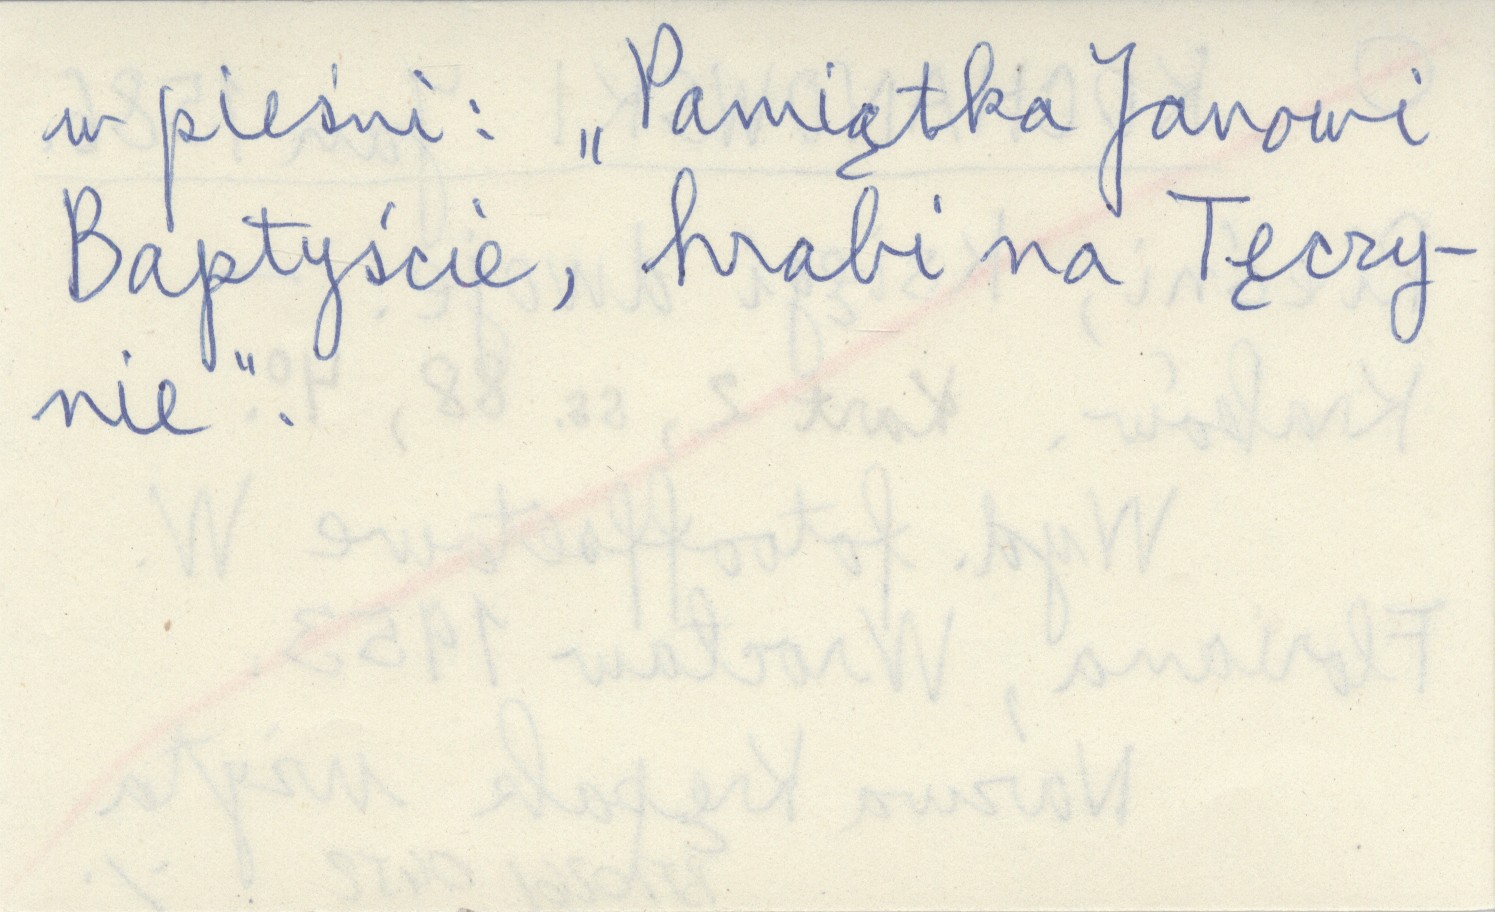 w pieśni: „Pamiątka Janowi
Baptyście, hrabi na Tęczy-
nie".